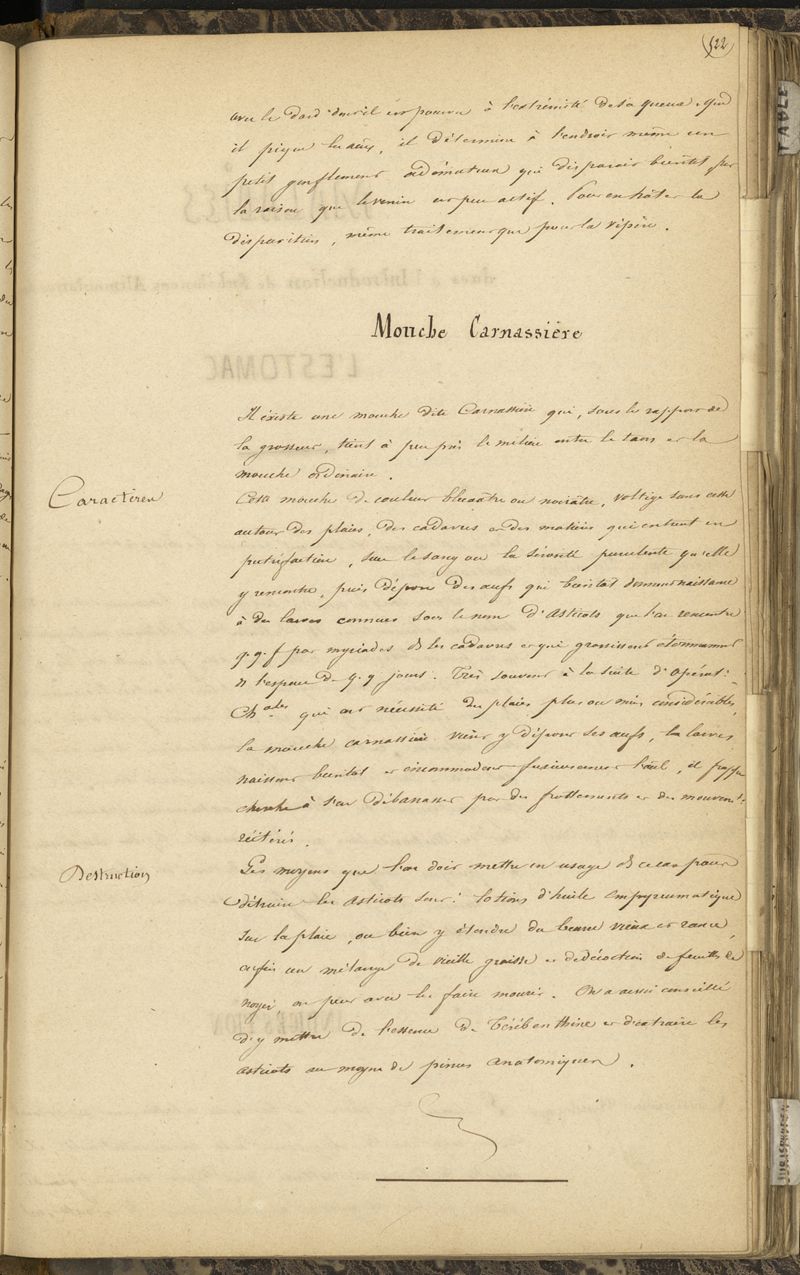 522
avec le dard dont il est pourvu à l'extrémité de sa queue. Quand
il pique les aûts, il détermine à l'endroit même un
petit gonflement oedémateux qui disparait bientôt par
la raison que le venin est peu actif. Pour en hâter la
disparition, même traitement que pour la vipère.
Mouche Carnassière
Il existe une mouche dite Carnassière qui, sous le rapport de
la grosseur, tient à peu près le milieu entre le taon et la
mouche ordinaire.
Caractères
Cette mouche de couleur bleuâtre ou noirâtre, voltige sans cesse
autour des plaies, des cadavres et des matières qui entrent en
putréfaction, suce le sang ou la sérosité purulente qu'elle
y rencontre, puis dépose des oeufs qui bientôt donnent naissance
à des larves connues sous le nom d'Asticots que l'on rencontre
q.q.f par myriades ds les cadavres et qui grossissent étonnamment
ds l'espace de q.q jours. Très souvent à la suite d'opérat:
Ch.ales qui ont nécessité des plaies plus ou moins considérables,
la mouche carnassière vient y déposer ses oeufs, les larves
naissent bientôt et incommodent l'aûl, il
cherche à s'en débarrasser par des frottements et des mouvents
réitérés.
Destruction
Les moyens que l'on doit mettre en usage ds ce cas pour
détruire les asticots sont: lotions d'huile empyreumatique
sur la plaie, ou bien y étendre du beurre vieux et rance,
enfin un mélange de vieille graisse et de décoction de feuilles de
noyer, on peut avec les faire mourir. On a aussi conseillé
d'y mettre de l'essence de Térébenthine et d'extraire les
asticots au moyen de pinces anatomiques.
TABLE
JURISPRUDEN